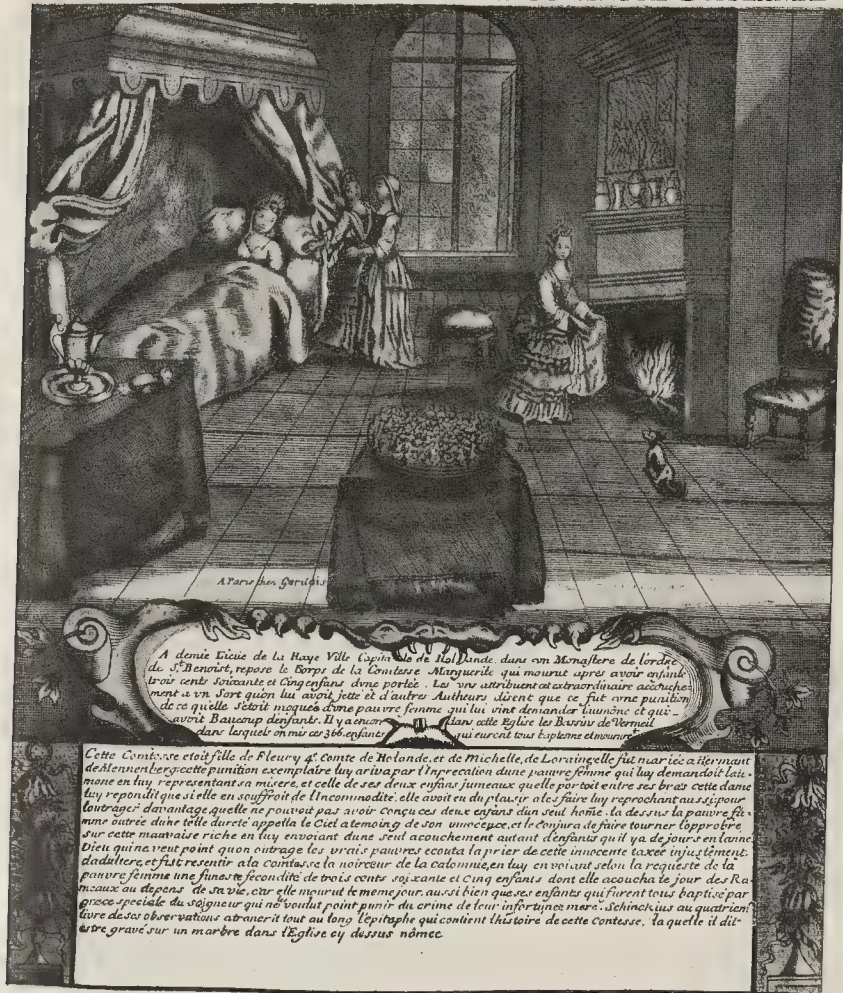 A Paris chez Gerulois
A demie Lieue de la Haye Ville Capitale de Hollande, dans vn Monastere de l'ordre
de St. Benoist, repose le Corps de la Comtesse Marguerite qui mourut apres avoir enfanté
trois cents Soixante et Cinq enfans dvne portée. Les vns attribuent cet extraordinaire accouche-
ment a vn Sort qu'on lui avoit jetté et d'autres Autheurs disent que ce fut vne punition
de ce qu'elle s'etoit moquée d'vne pauvre femme qui lui vint demander l'aumône et qui
avoit Baucoup d'enfants. Il y a encor dans cette Eglise les Bassins de Vermeil
dans lesquels on mit ces 366 enfants qui eurent tous baptesme et moururent
Cette Comtesse etoit fille de Fleury 4e. Comte de Holande, et de Michelle, de Loraine, elle fut mariée a Hermant
de Mennenberg: cette punition exemplaire luy ariva par l'Inprecation dune pauvre femme qui luy demandoit lau-
mone en luy representant sa misere, et celle de ses deux enfans jumeaux quelle portoit entre ses bras cette dame
luy repondit que si elle en souffroit de l'Incommodité, elle avoit eu du plaisir a les faire luy reprochant aussi pour
loutrager davantage, quelle ne pouvoit pas avoir conçu ces deux enfans dun seul home. la dessus la pauvre fa-
mme outrée dune telle dureté appella le Ciel a temoing de son innocence, et le Conjura de faire tourner l'opprobre
sur cette mauvaise riche en luy envoiant dune seul acouchement autant d'enfants qu'il ya de jours en lanne
Dieu qui ne veut point quon outrage les vrais pauvres ecouta la prier de cette innocente taxée injustement
dadultere, et fist resentir a la comtesse la noirceur de la calomnie, en luy envoiant selon la requeste de la
pauvre femme une funeste fecondité de trois cents soixante et Cinq enfants dont elle acoucha le jour des Ra-
meaux au depens de sa vie, car elle mourut le meme jour, aussi bien que ses enfants qui furent tous baptisé par
grace speciale du Seigneur qui ne voulut point punir du crime de leur infortunée mere. Schinckius au quatriem
livre de ses observations a transcrit tout au long l'epitaphe qui contient l'histoire de cette Contesse, la quelle il dit
estre gravé sur un marbre dans l'Eglise cy dessus nômée